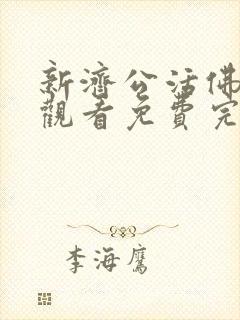 新濟公活佛
觀看免費完
李海鷹